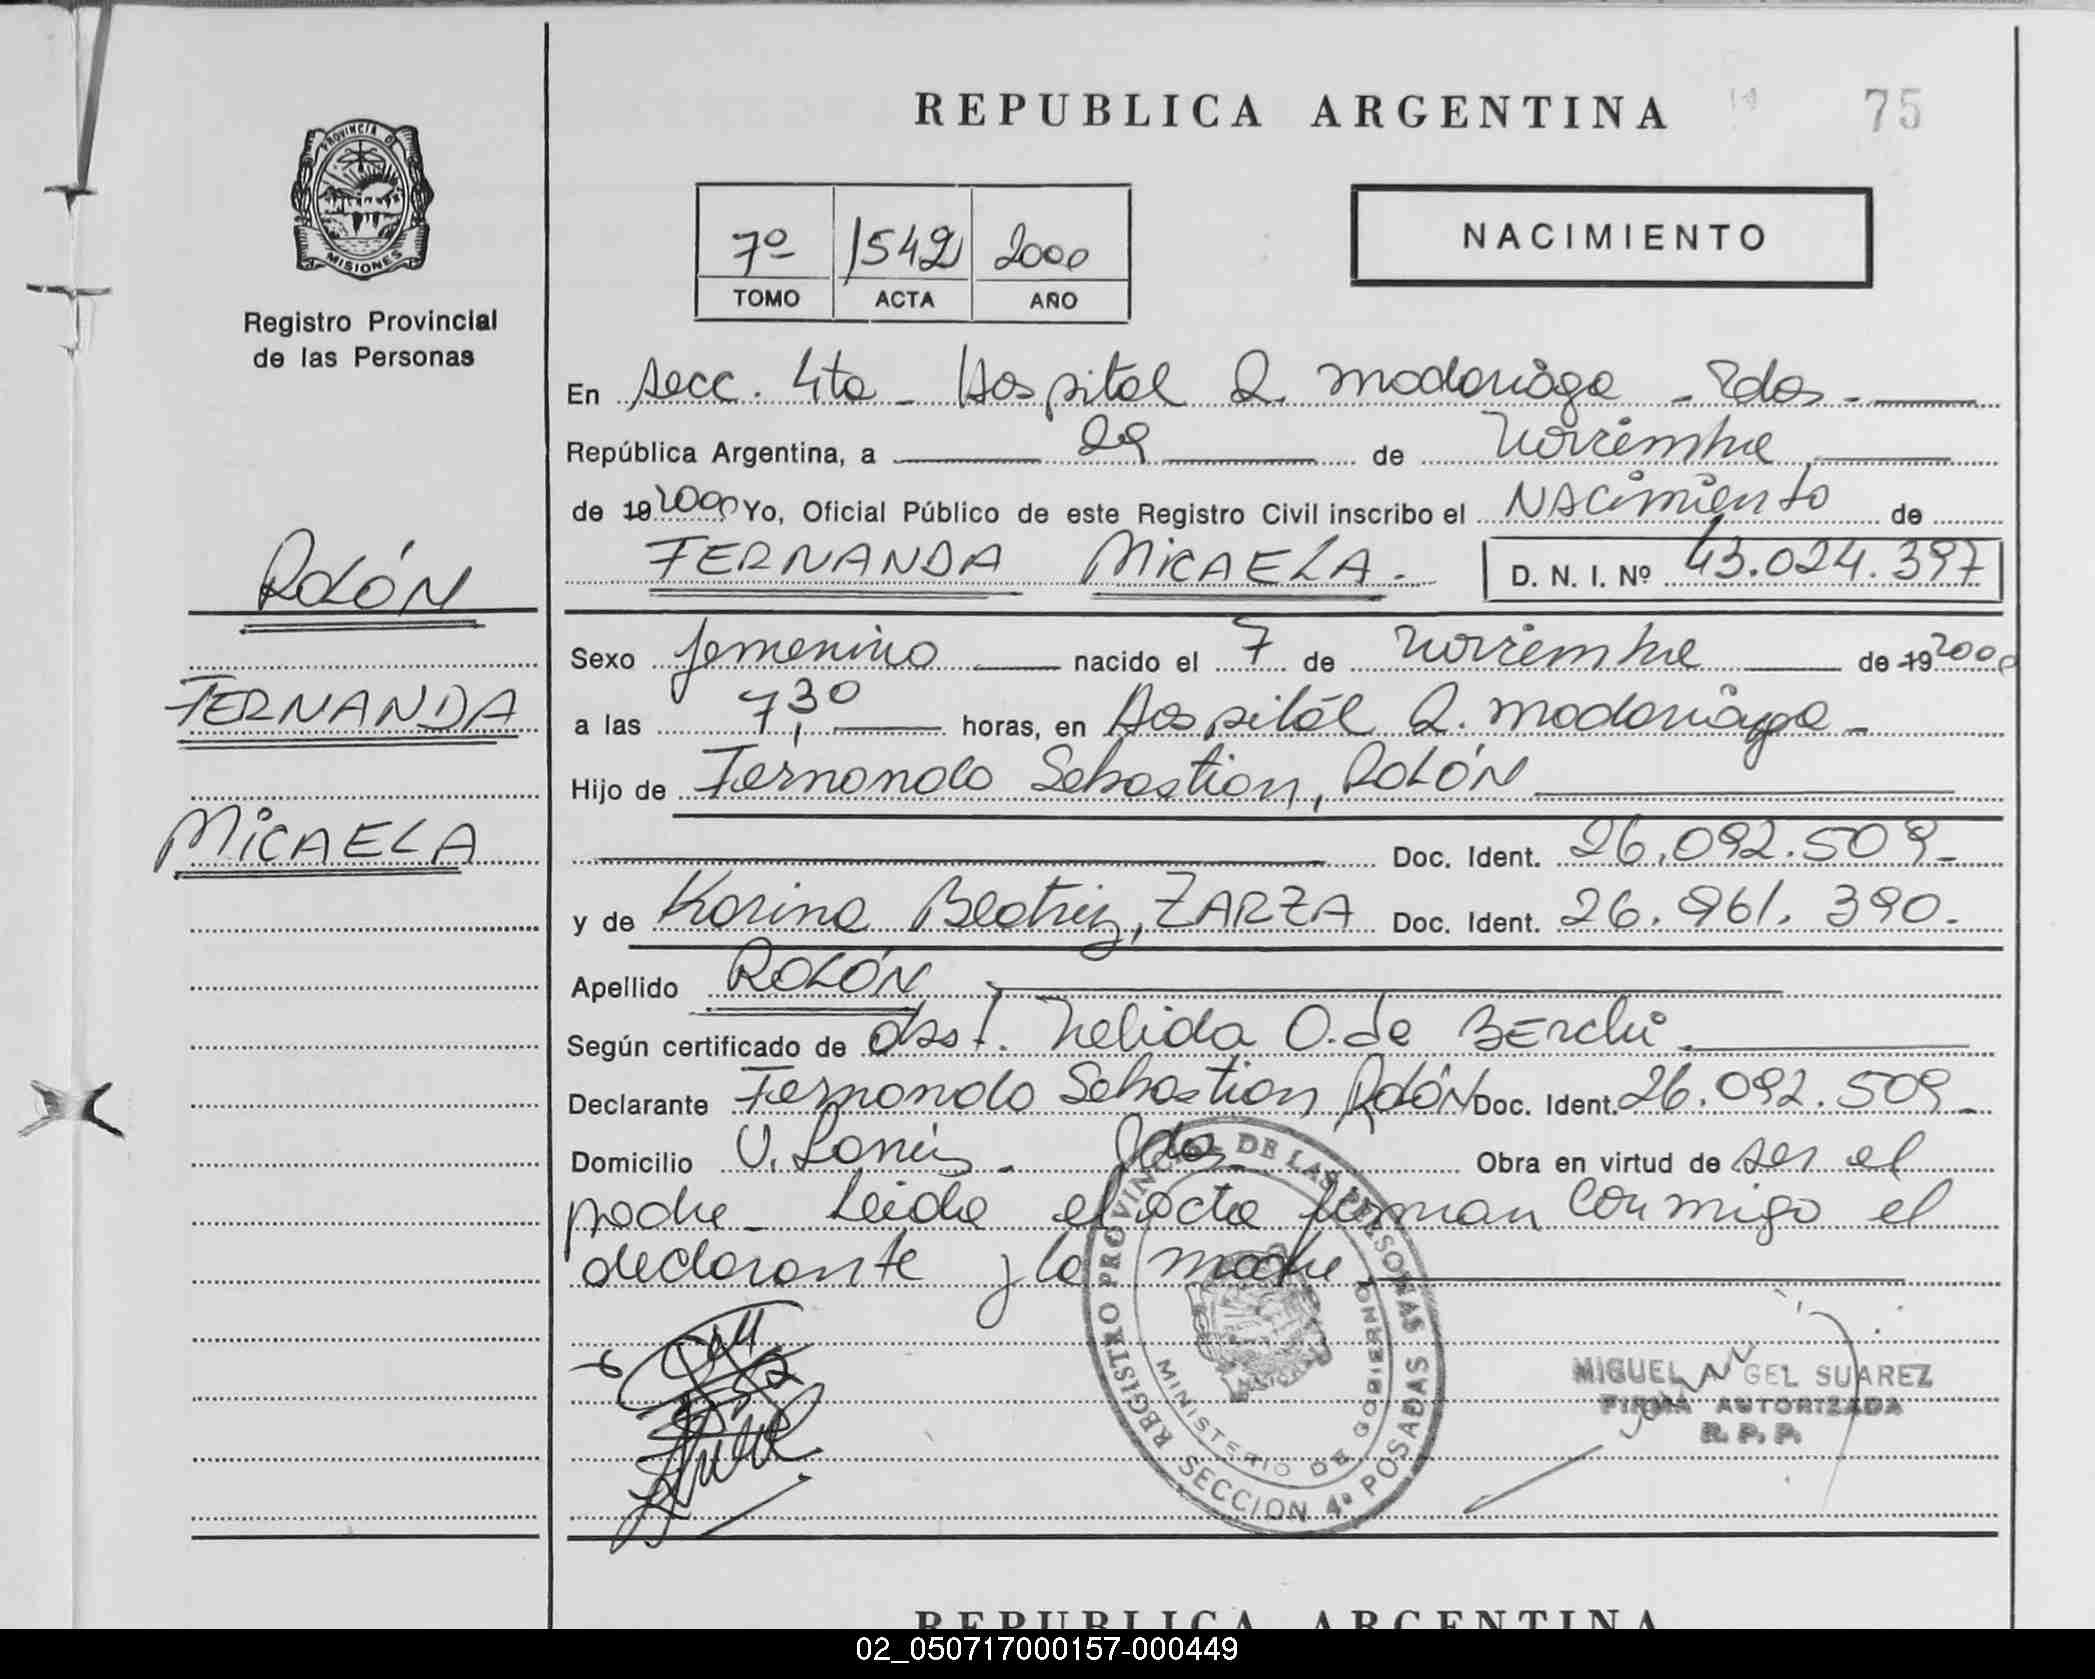 REPUBLICA ARGENTINA
75
PROVINCIA DE
MISIONES
Registro Provincial
de las Personas
7º 1542 2000
TOMO ACTA AÑO
NACIMIENTO
En Secc. 4ta - Hospital R. Madariaga - Pdas -
República Argentina, a 29 de Noviembre
de 19 2000 Yo, Oficial Público de este Registro Civil inscribo el NACimiento de
FERNANDA MICAELA. D. N. I. Nº 43.024.397
ROLÓN
FERNANDA
MICAELA
Sexo femenino nacido el 7 de Noviembre de 19 2000
a las 7,30 horas, en Hospital R. Madariaga -
Hijo de Fernando Sebastian, ROLÓN
Doc. Ident. 26.092.509-
y de Karina Beatriz, ZARZA Doc. Ident. 26.961.390.
Apellido ROLÓN
Según certificado de obst. Nelida O. de BErchi
Declarante Fernando Sebastian ROLÓN Doc. Ident. 26.092.509-
Domicilio V. Lanús - Pdas - Obra en virtud de ser el
padre - Leida el acta firman conmigo el
declarante y la madre
REGISTRO PROVINCIAL DE LAS PERSONAS
MINISTERIO DE GOBIERNO
SECCION 4ª POSADAS
MIGUEL ANGEL SUAREZ
FIRMA AUTORIZADA
R. P. P.
REPUBLICA ARGENTINA
02_050717000157-000449